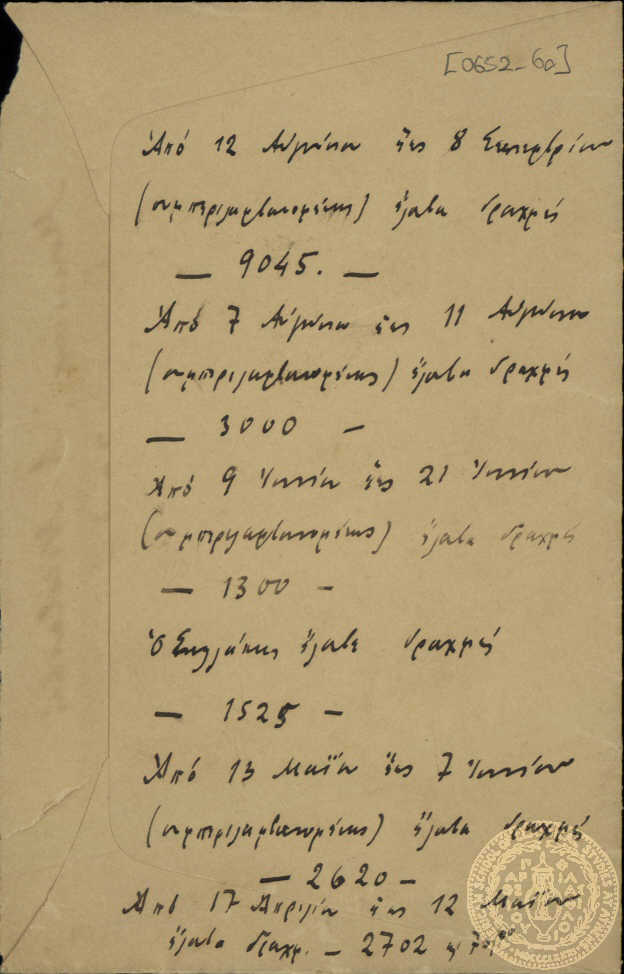 [0652-60]
Ἀπό 12 Αὐγούστου ἕως 8 Σεπτεμβρίου
(συμπεριλαμβανομένης) ἔλαβα δραχμές
— 9045. —
Ἀπό 7 Αὐγούστου ἕως 11 Αὐγούστου
(συμπεριλαμβανομένης) ἔλαβα δραχμές
— 3000 —
Ἀπό 9 Ἰουνίου ἕως 21 Ἰουνίου
(συμπεριλαμβανομένης) ἔλαβα δραχμές
— 1300 —
Ὁ ἔλαβε δραχμές
— 1525 —
Ἀπό 13 Μαΐου ἕως 7 Ἰουνίου
(συμπεριλαμβανομένης) ἔλαβα δραχμές
— 2620 —
Ἀπό 17 Ἀπριλίου ἕως 12 Μαΐου
ἔλαβα δραχμ. — 2702